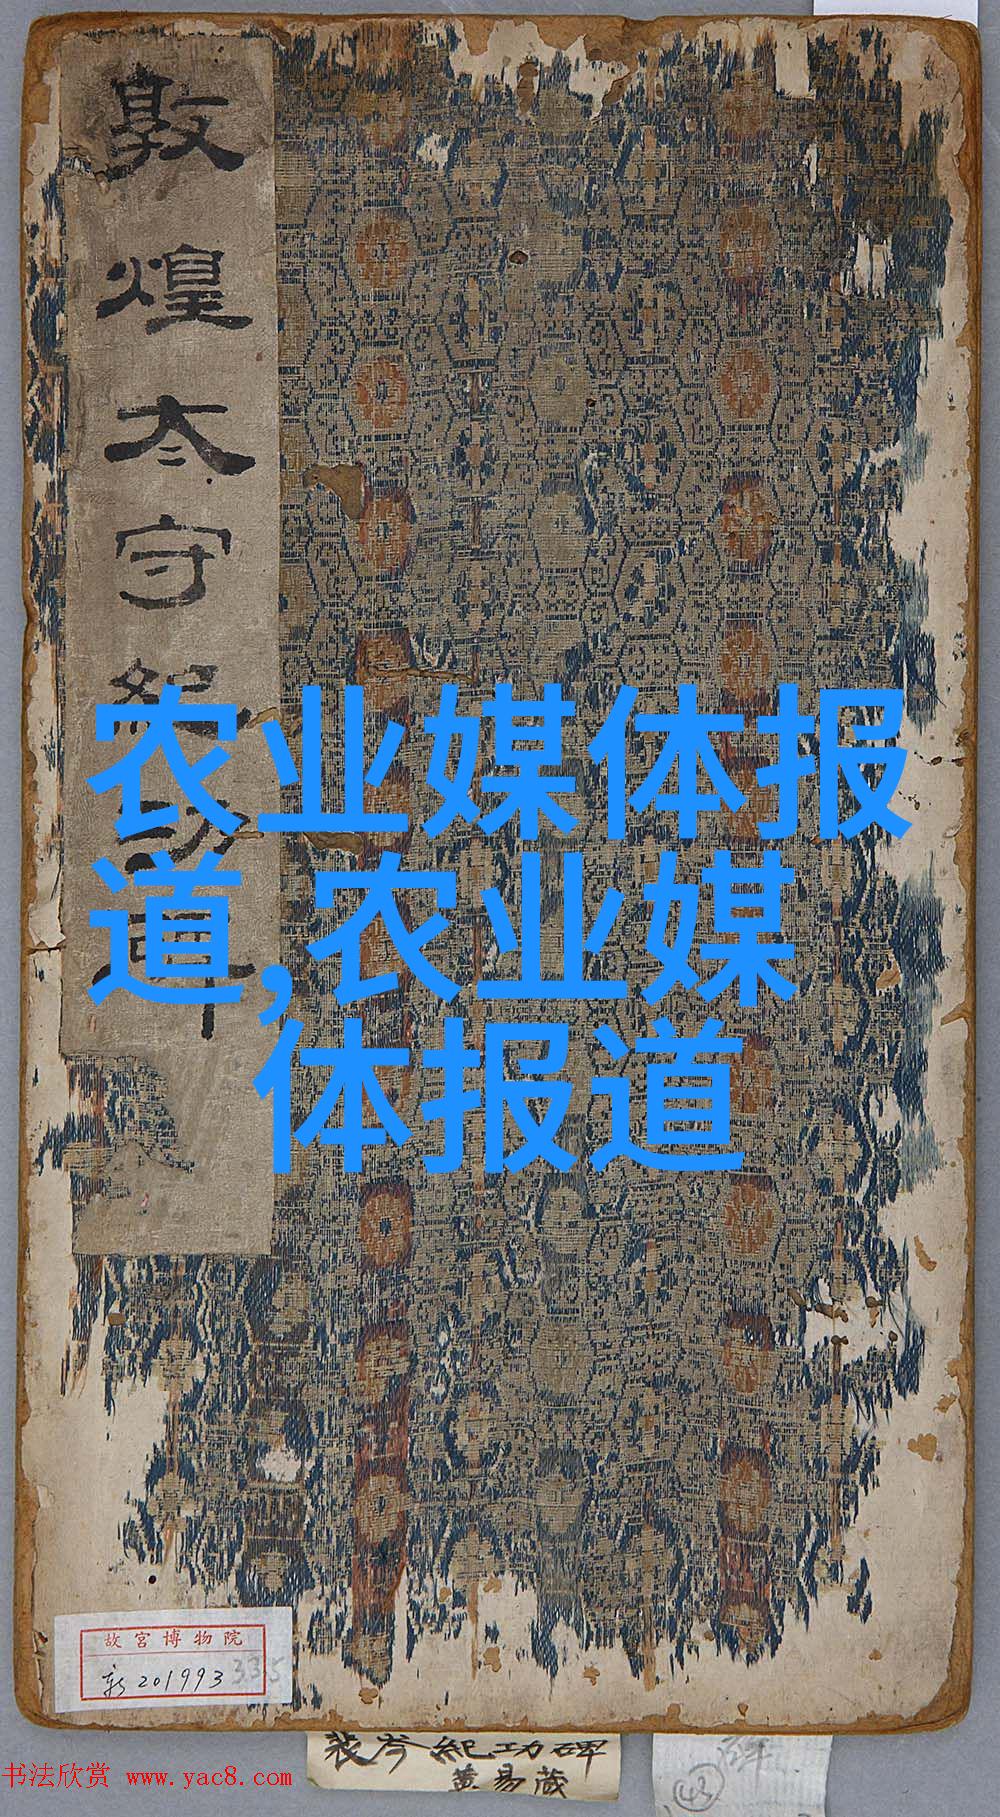 敦煌太守紀功碑
农业媒体报
道,农业媒
体报道
故宫博物院
新201993 335
裴岑紀功碑
黄易藏
43
书法欣赏 www.yac8.com